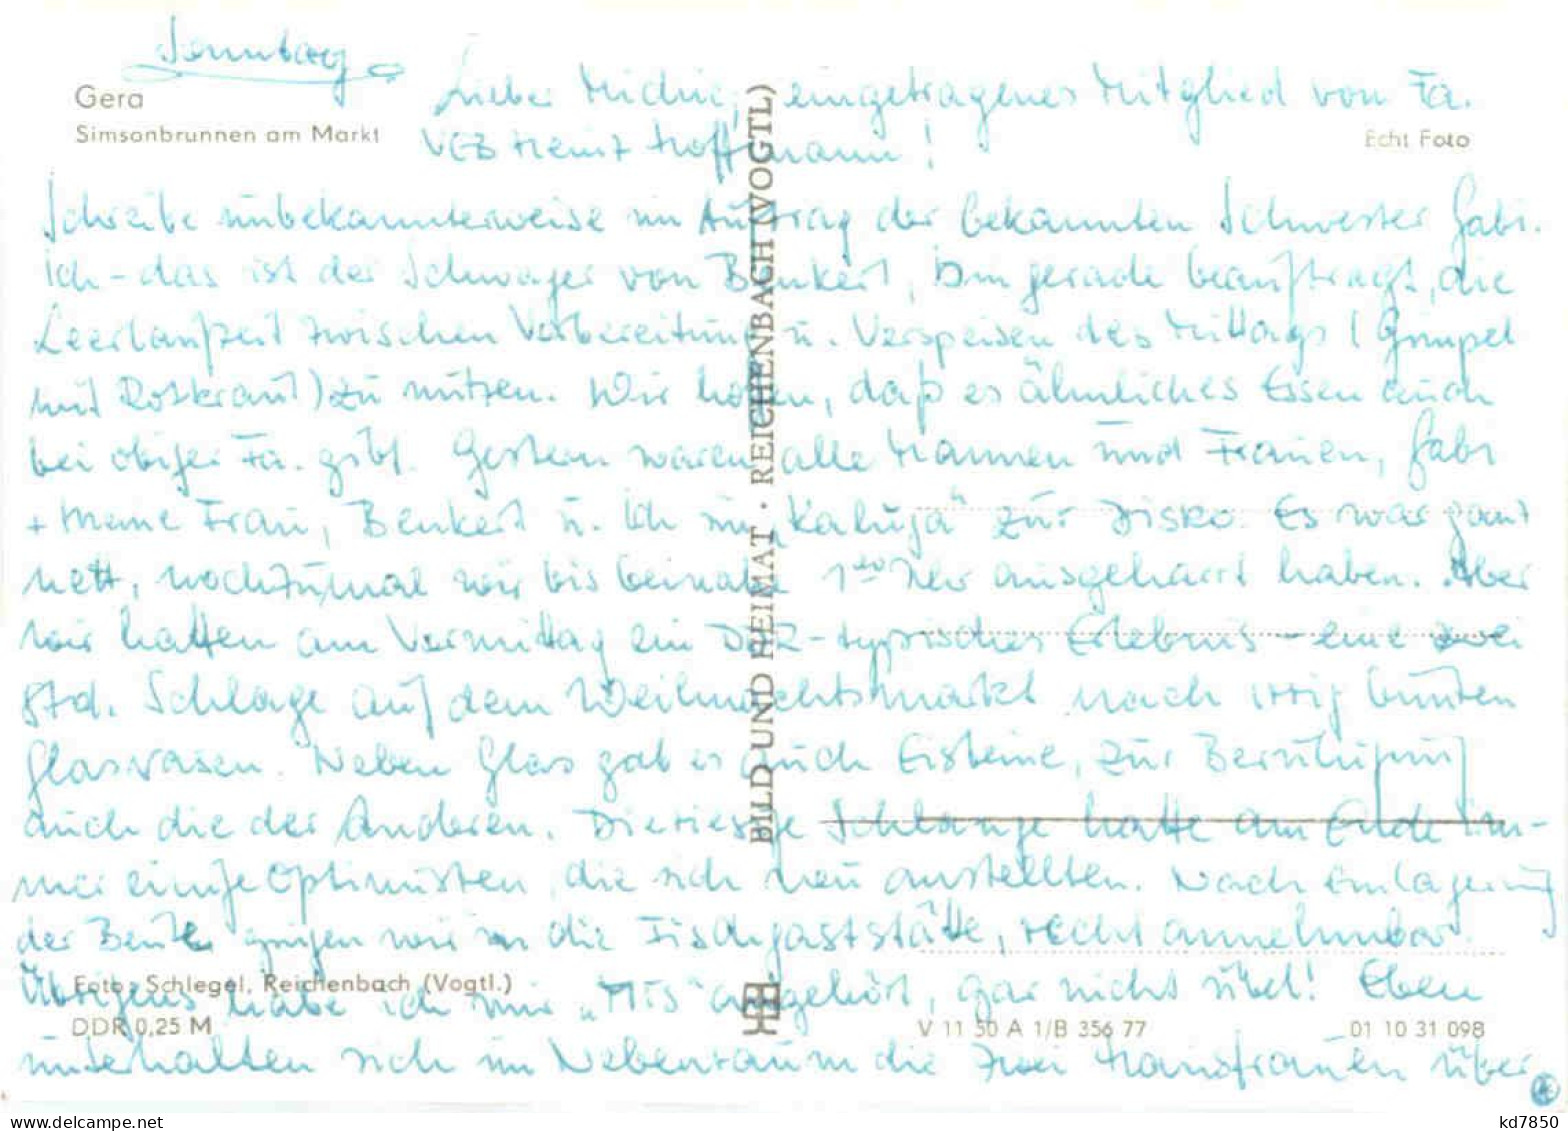 Sonntag
Gera
Simsonbrunnen am Markt
Echt Foto
Lieber Michie, eingetragenes Mitglied von Fa.
VEB Heinz Hoffmann!
Schreibe unbekannterweise im Auftrag der bekannten Schwester Gabi.
Ich - das ist der Schwager von Benkert, bin gerade beauftragt, die
Leerlaufzeit zwischen Vorbereitung u. Verspeisen des Mittags (Gimpel
mit Rotkraut) zu nutzen. Wir hoffen, daß es ähnliches Essen auch
bei obiger Fa. gibt. Gestern waren alle Mannen und Frauen, Gabi
+ meine Frau, Benkert u. ich im "Kaluga" zur Disko. Es war ganz
nett, nochzumal wir bis beinahe ausgeharrt haben. Aber
wir hatten am Vormittag ein typisches Erlebnis - eine zwei
std. Schlage auf dem Weihnachtsmarkt nach bunten
Glasvasen. Neben Glas gab es auch Eisbeine, zur Beruhigung
auch die der Anderen. Die riesige Schlange hatte am Ende im-
mer einige Optimisten, die sich neu anstellten. Nach Einlagerung
der Beute gingen wir in die Fischgaststätte, recht annehmbar.
Übrigens habe ich mir angehört, gar nicht übel! Eben
unterhalten sich im Nebenraum die zwei Hausfrauen über
BILD UND HEIMAT · REICHENBACH (VOGTL)
Foto: Schlegel, Reichenbach (Vogtl.)
DDR 0,25 M
V 11 50 A 1/B 356 77
01 10 31 098
kd7850